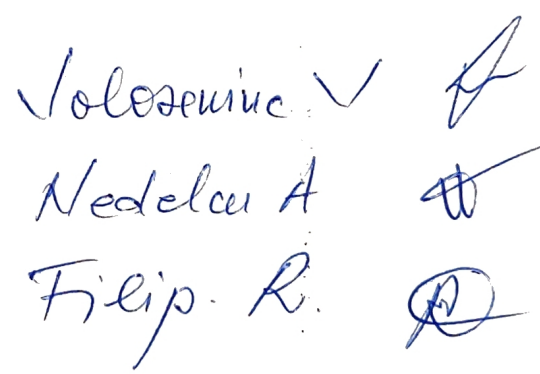 Voloseniuc V
Nedelcu A
Filip. R.